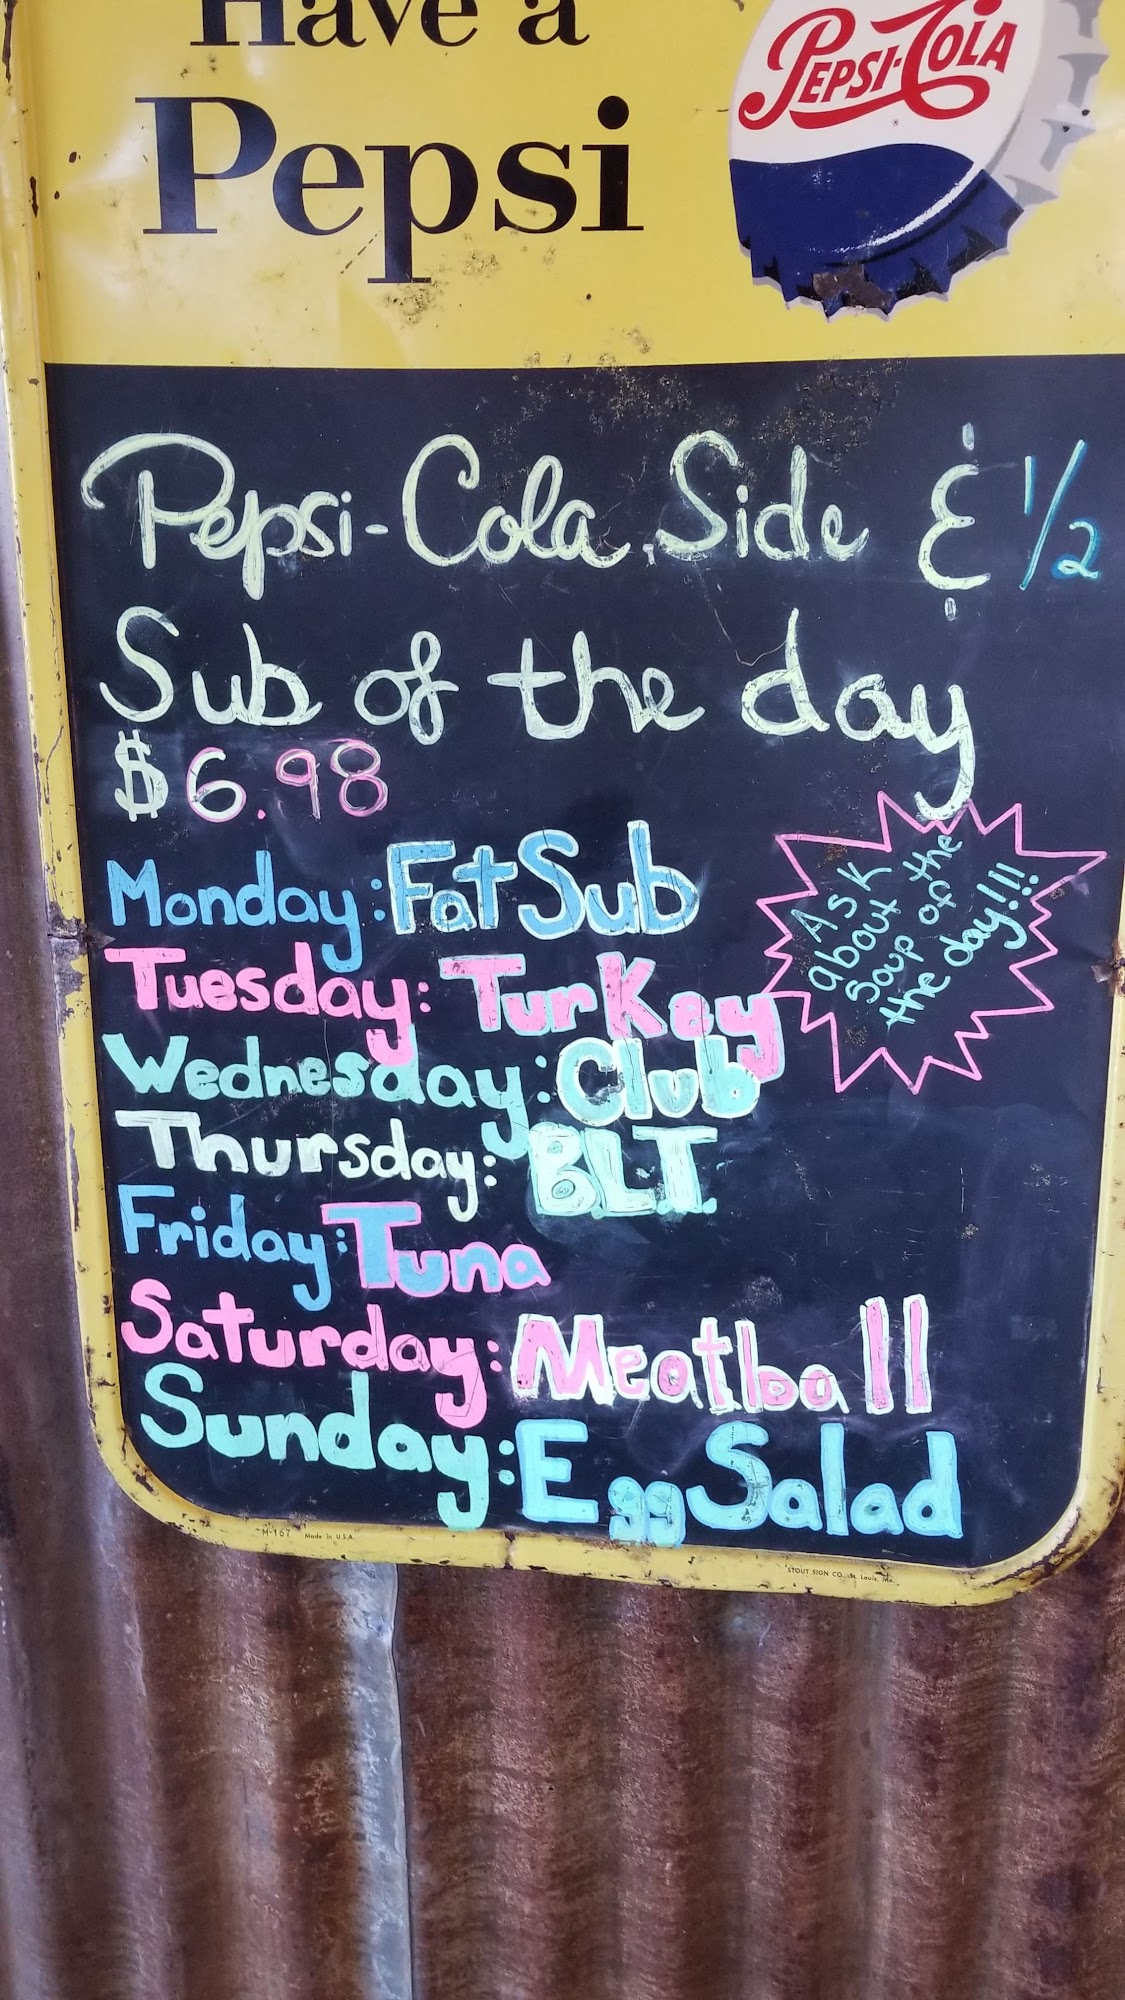 Have a
Pepsi
PEPSI-COLA
Pepsi-Cola, Side & 1/2
Sub of the day
$6.98
Monday: Fat Sub
Tuesday: Turkey
Wednesday: Club
Thursday: B.L.T.
Friday: Tuna
Saturday: Meatball
Sunday: Egg Salad
Ask
about
Soup of the
the day!!!
M-167 Made in U.S.A.
STOUT SIGN CO. St. Louis, Mo.